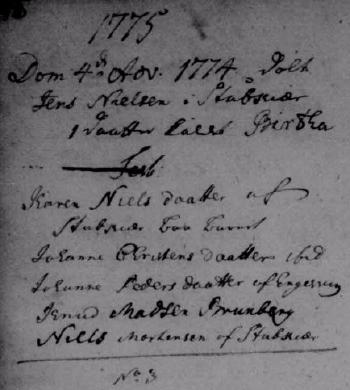 1775
Dom 4 Adv. 1774 Døbt
Jens Nielsen i Stubskiær
1 Daatter kaldt Birtha
Test:
Karen Niels daatter af
Stubskiær bar barnet
Johanne Christens daatter ibid
Johanne Peders daatter af
Madsen Brunberg
Niels Mortensen af Stubskiær
No 3